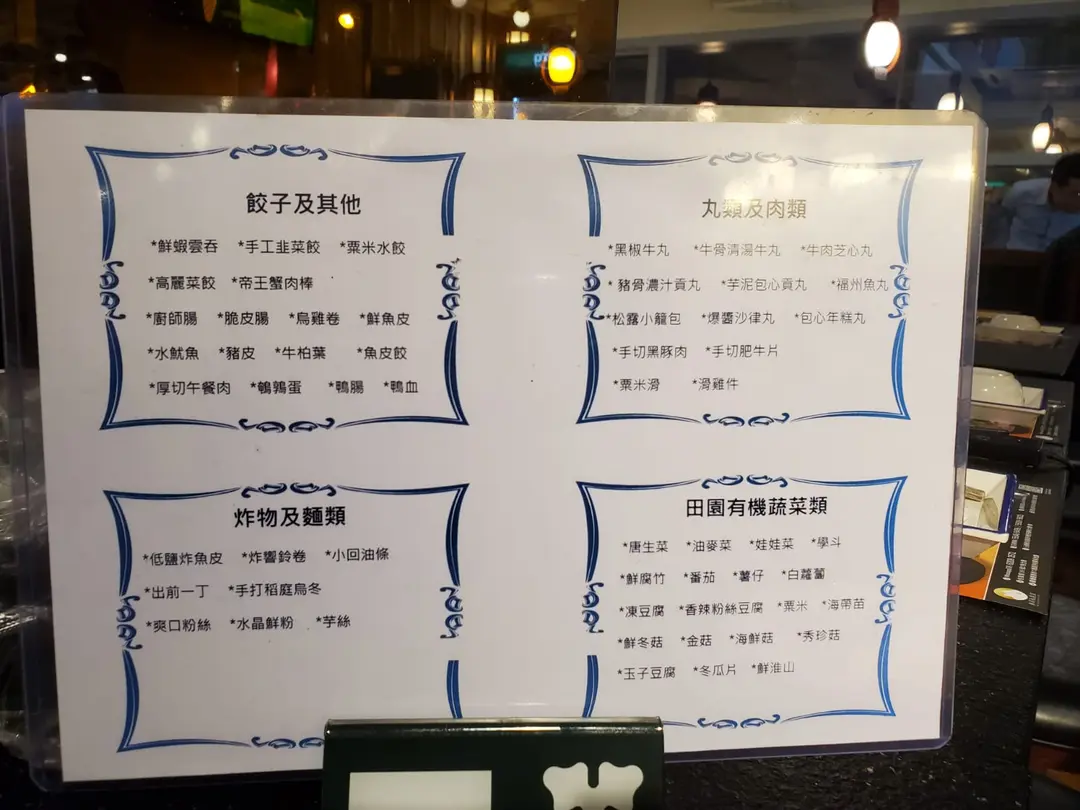 餃子及其他
*鮮蝦雲吞 *手工韭菜餃 *粟米水餃
*高麗菜餃 *帝王蟹肉棒
*廚師腸 *脆皮腸 *烏雞卷 *鮮魚皮
*水魷魚 *豬皮 *牛柏葉 *魚皮餃
*厚切午餐肉 *鵪鶉蛋 *鴨腸 *鴨血
丸類及肉類
*黑椒牛丸 *牛骨清湯牛丸 *牛肉芝心丸
*豬骨濃汁貢丸 *芋泥包心貢丸 *福州魚丸
*松露小籠包 *爆醬沙律丸 *包心年糕丸
*手切黑豚肉 *手切肥牛片
*粟米滑 *滑雞件
炸物及麵類
*低鹽炸魚皮 *炸響鈴卷 *小回油條
*出前一丁 *手打稻庭烏冬
*爽口粉絲 *水晶鮮粉 *芋絲
田園有機蔬菜類
*唐生菜 *油麥菜 *娃娃菜 *學斗
*鮮腐竹 *番茄 *薯仔 *白蘿蔔
*凍豆腐 *香辣粉絲豆腐 *粟米 *海帶苗
*鮮冬菇 *金菇 *海鮮菇 *秀珍菇
*玉子豆腐 *冬瓜片 *鮮淮山